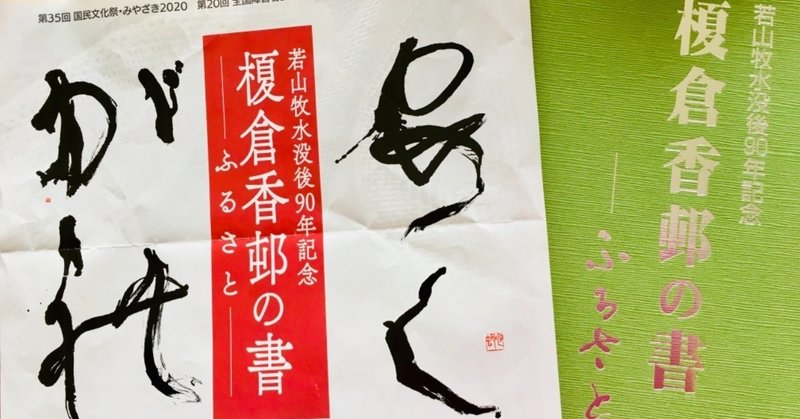 第35回 国民文化祭・みやざき2020　第20回 全国障害者
あく
若山牧水没後90年記念
榎倉香邨の書
―ふるさと―
がれ
若山牧水没後90年記念
榎倉香邨の書
―ふるさと